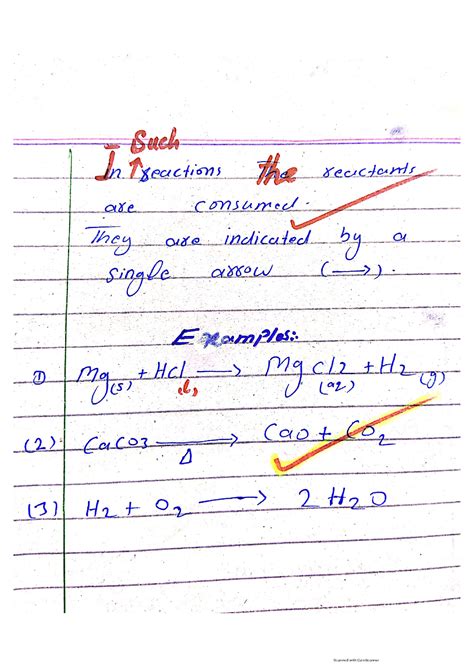 Such
In ↑ reactions The reactants
are consumed.
They are indicated by a
single arrow (⟶).
Examples:
① Mg(s) + HCl(l) ⟶ MgCl2(aq) + H2(g)
(2) CaCO3 ⟶ CaO + CO2
Δ
(3) H2 + O2 ⟶ 2H2O
Scanned with CamScanner